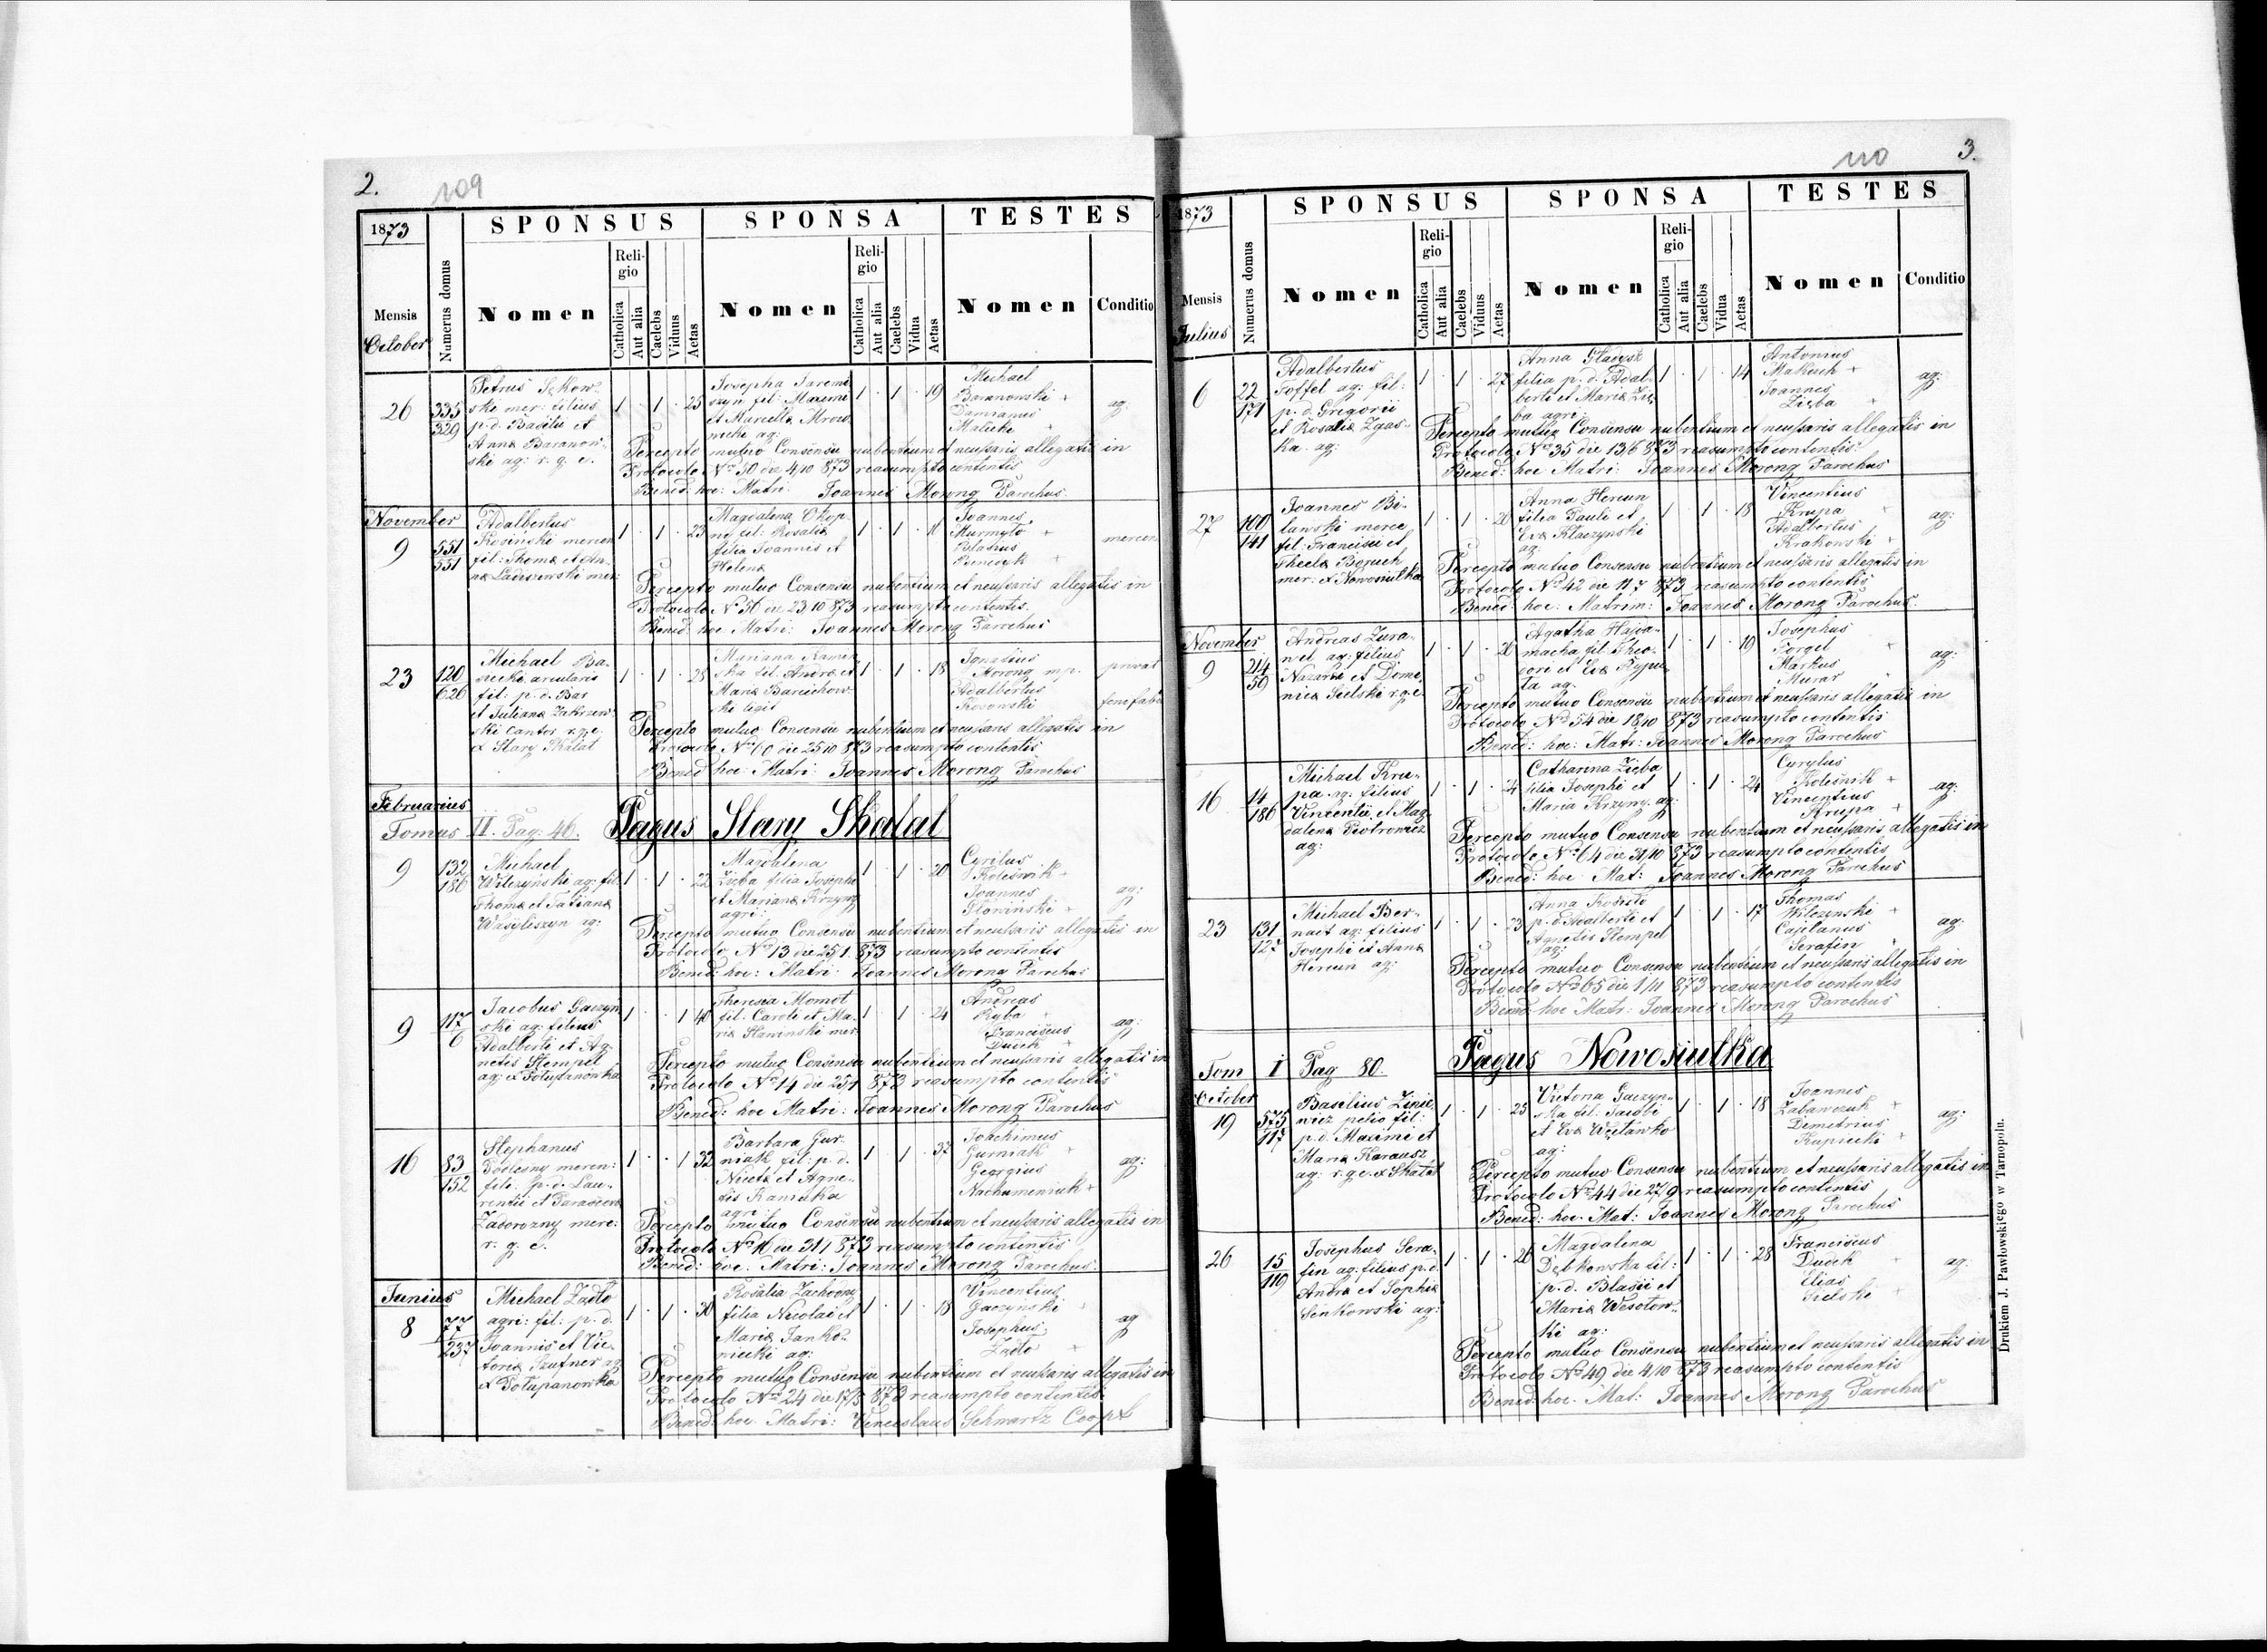 2.
109
1873
SPONSUS
SPONSA
TESTES
Mensis
October
Numerus domus
Nomen
Religio
Catholica
Aut alia
Caelebs
Viduus
Aetas
Nomen
Religio
Catholica
Aut alia
Caelebs
Vidua
Aetas
Nomen
Conditio
26
335
329
Petrus Sękow-
ski mer: filius
p. d. Basilii et
Anna Baranow
ski ag: r. g. c.
1 . 1 . 25
Josepha Jaremi
szyn fil: Maximi
et Marcella Mrow
nicki ag:
1 . 1 . 19
Michael
Baranowski +
Damianus
Malicki +
ag:
Percepto mutuo Consensu nubentium et neussaris allegatis in
Protocolo No 50 die 4/10 873 reasumpto contentis
Bened: hoc: Matri: Joannes Morong Parochus
November
9
551
551
Adalbertus
Kosinski mercen
fil: Thoma et An-
na Ladiszewski mer:
1 . 1 . 23
Magdalena
fil: Rosalia
filia Joannis et
Helena
1 . 1 .
Joannes
Murmyto +
Blasius
Bencyk +
mercen
Percepto mutuo Consensu nubentium et neussaris allegatis in
Protocolo No 56 die 23/10 873 reasumpto contentis.
Bened: hoc Matri: Joannes Morong Parochus
23
120
626
Michael Ba-
secki arcularis
fil: p. d. Bas
et Juliana Zakrzew
ski Cantor r. g. c.
x Stary Skalat
1 . 1 . 28
Mariana Kamin
ska fil: Andrea et
Maria Barichow
ski
1 . 1 . 18
Ignatius
Morong mp.
Adalbertus
Kosowski
privat
Percepto mutuo Consensu nubentium et neussaris allegatis in
Protocolo No 60 die 25/10 873 reasumpto contentis
Bened hoc Matri: Joannes Morong Parochus
Februarius
Tomus II. Pag: 46. Pagus Stary Skalat
9
132
186
Michael
Wilczyński ag: fil:
Thoma et Tatiana
Wasyliszyn ag:
1 . 1 . 22
Magdalena
Zięba filia Josephi
et Mariana Krzyny
agri:
1 . 1 . 20
Cyrilus
Kolesnik +
Joannes
Słoniński +
ag:
Percepto mutuo Consensu nubentium et neussaris allegatis in
Protocolo No 13 die 25/1. 873 reasumpto contentis
Bened: hoc: Matri: Joannes Morong Parochus
9
117
6
Jacobus Gaczyń
ski ag: filius
Adalberti et Ag-
netis Stempel
ag: x Potupanówka
1 . . 1 40
Theresia Momot
fil: Caroli et Ma-
ria Staninski mer:
1 . 1 . 24
Andreas
Ryba +
Franciscus
Dudek +
ag:
Percepto mutuo Consensu nubentium et neussaris allegatis in
Protocolo No 14 die 25/1 873 reasumpto contentis
Bened: hoc Matri: Joannes Morong Parochus
16
83
152
Stephanus
Podlesny mercen:
fili: p. d. Lau-
rentii et Parascevia
Zadorozny merc:
r. g. c.
1 . . 1 32
Barbara Gur-
niak fil: p. d.
Niceta et Agne-
tis Kaminska
agri:
1 . 1 . 32
Joachimus
Gurniak +
Georgius
Nachumeniuk +
ag:
Percepto mutuo Consensu nubentium et neussaris allegatis in
Protocolo No 16 die 31/1 873 reasumpto contentis
Bened: hoc: Matri: Joannes Morong Parochus
Junius
8
77
237
Michael Żądło
agri: fil: p. d.
Joannis et Vic-
toria Szufner ag
x Potupanowka
1 . 1 . 30
Rosalia Zachodny
filia Nicolai et
Maria Janko-
niecki ag:
1 . 1 . 18
Vincentius
Gaczynski +
Josephus
Żądło +
ag
Percepto mutuo Consensu nubentium et neussaris allegatis in
Protocolo No 24 die 17/5 873 reasumpto contentis
Bened: hoc Matri: Venceslaus Schwartz Coopt
110
3.
1873
SPONSUS
SPONSA
TESTES
Mensis
Julius
Numerus domus
Nomen
Religio
Catholica
Aut alia
Caelebs
Viduus
Aetas
Nomen
Religio
Catholica
Aut alia
Caelebs
Vidua
Aetas
Nomen
Conditio
6
22
171
Adalbertus
Toffel ag: fil:
p. d. Gregorii
et Rosalia Zgas-
ka ag:
1 . 1 . 27
Anna Gładysz
filia p. d. Adal-
berti et Maria Zię
ba agri:
1 . 1 . 14
Antonius
Makuch +
Joannes
Zięba +
ag:
Percepto mutuo Consensu nubentium et neussaris allegatis in
Protocolo No 35 die 13/6 873 reasumpto contentis:
Bened: hoc Matri: Joannes Morong Parochus
27
100
141
Joannes Bi-
lawski merce
fil: Francisci et
Thecla Boruch
mer: x Nowosiulka
1 . 1 . 26
Anna Hercun
filia Pauli et
Eva Kłaczynski
ag:
1 . 1 . 18
Vincentius
Krupa +
Adalbertus
Krakowski +
ag:
Percepto mutuo Consensu nubentium et neussaris allegatis in
Protocolo No 42 die 11/7 873 reasumpto contentis
Bened: hoc: Matrim: Joannes Morong Parochus.
November
9
214
59
Andreas Zura-
wel ag: filius
Nazarii et Domi-
nica Sielski r. g. c.
1 . 1 . 26
Agatha Hajda-
macha fil: Theo-
dori et Eva Rypu-
ta ag:
1 . 1 . 19
Josephus
Forgel +
Markus
Murar +
ag:
Percepto mutuo Consensu nubentium et neussaris allegatis in
Protocolo No 54 die 18/10 873 reasumpto contentis
Bened: hoc: Matr: Joannes Morong Parochus
16
14
186
Michael Kru-
pa ag: filius
Vincentii et Mag
dalena Piotrowicz
ag:
1 . 1 . 24
Catharina Zięba
filia Josephi et
Maria Krzyny ag:
1 . 1 . 24
Cyrylus
Kolesnik +
Vincentius
Krupa +
ag:
Percepto mutuo Consensu nubentium et neussaris allegatis in
Protocolo No 64 die 31/10 873 reasumpto contentis
Bened: hoc Mat: Joannes Morong Parochus
23
131
127
Michael Ber-
nait ag: filius
Josephi et Anna
Hercun ag:
1 . 1 . 23
Anna
p. d. Adalberti et
Agnetis Stempel
ag:
1 . 1 . 17
Thomas
Wilczenski +
Cajetanus
Serafin +
ag:
Percepto mutuo Consensu nubentium et neussaris allegatis in
Protocolo No 65 die 1/11 873 reasumpto contentis
Bened: hoc Matr: Joannes Morong Parochus
Tom I Pag 80. Pagus Nowosiulka
October
19
575
117
Basilius Zinie-
wicz pelio fil:
p. d. Maximi et
Maria Karausz
ag: r. g. c. x Skałat
1 . 1 . 25
Victoria Gaczyn-
ska fil: Jacobi
et Eva Wcislawko
ag:
1 . 1 . 18
Joannes
Zabawczuk +
Demetrius
Kupiecki +
ag:
Percepto mutuo Consensu nubentium et neussaris allegatis in
Protocolo No 44 die 27/9 reasumpto contentis
Bened: hoc Mat: Joannes Morong Parochus
26
15
119
Josephus Sera-
fin ag: filius p. d.
Andrea et Sophia
Sinkowski ag:
1 . 1 . 26
Magdalena
Dębkowska fil:
p. d. Blasii et
Maria Wesołow-
ki ag:
1 . 1 . 28
Franciscus
Dudek +
Elias
Sielski +
ag:
Percepto mutuo Consensu nubentium et neussaris allegatis in
Protocolo No 49 die 4/10 873 reasumpto contentis
Bened: hoc. Mat: Joannes Morong Parochus
Drukiem J. Pawłowskiego w Tarnopolu.